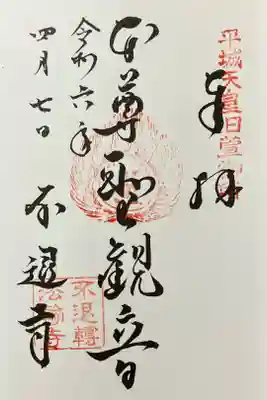 平城天皇旧萱御所
奉拝
本尊聖観音
令和六年
四月七日
不退寺
不退轉
法輪寺